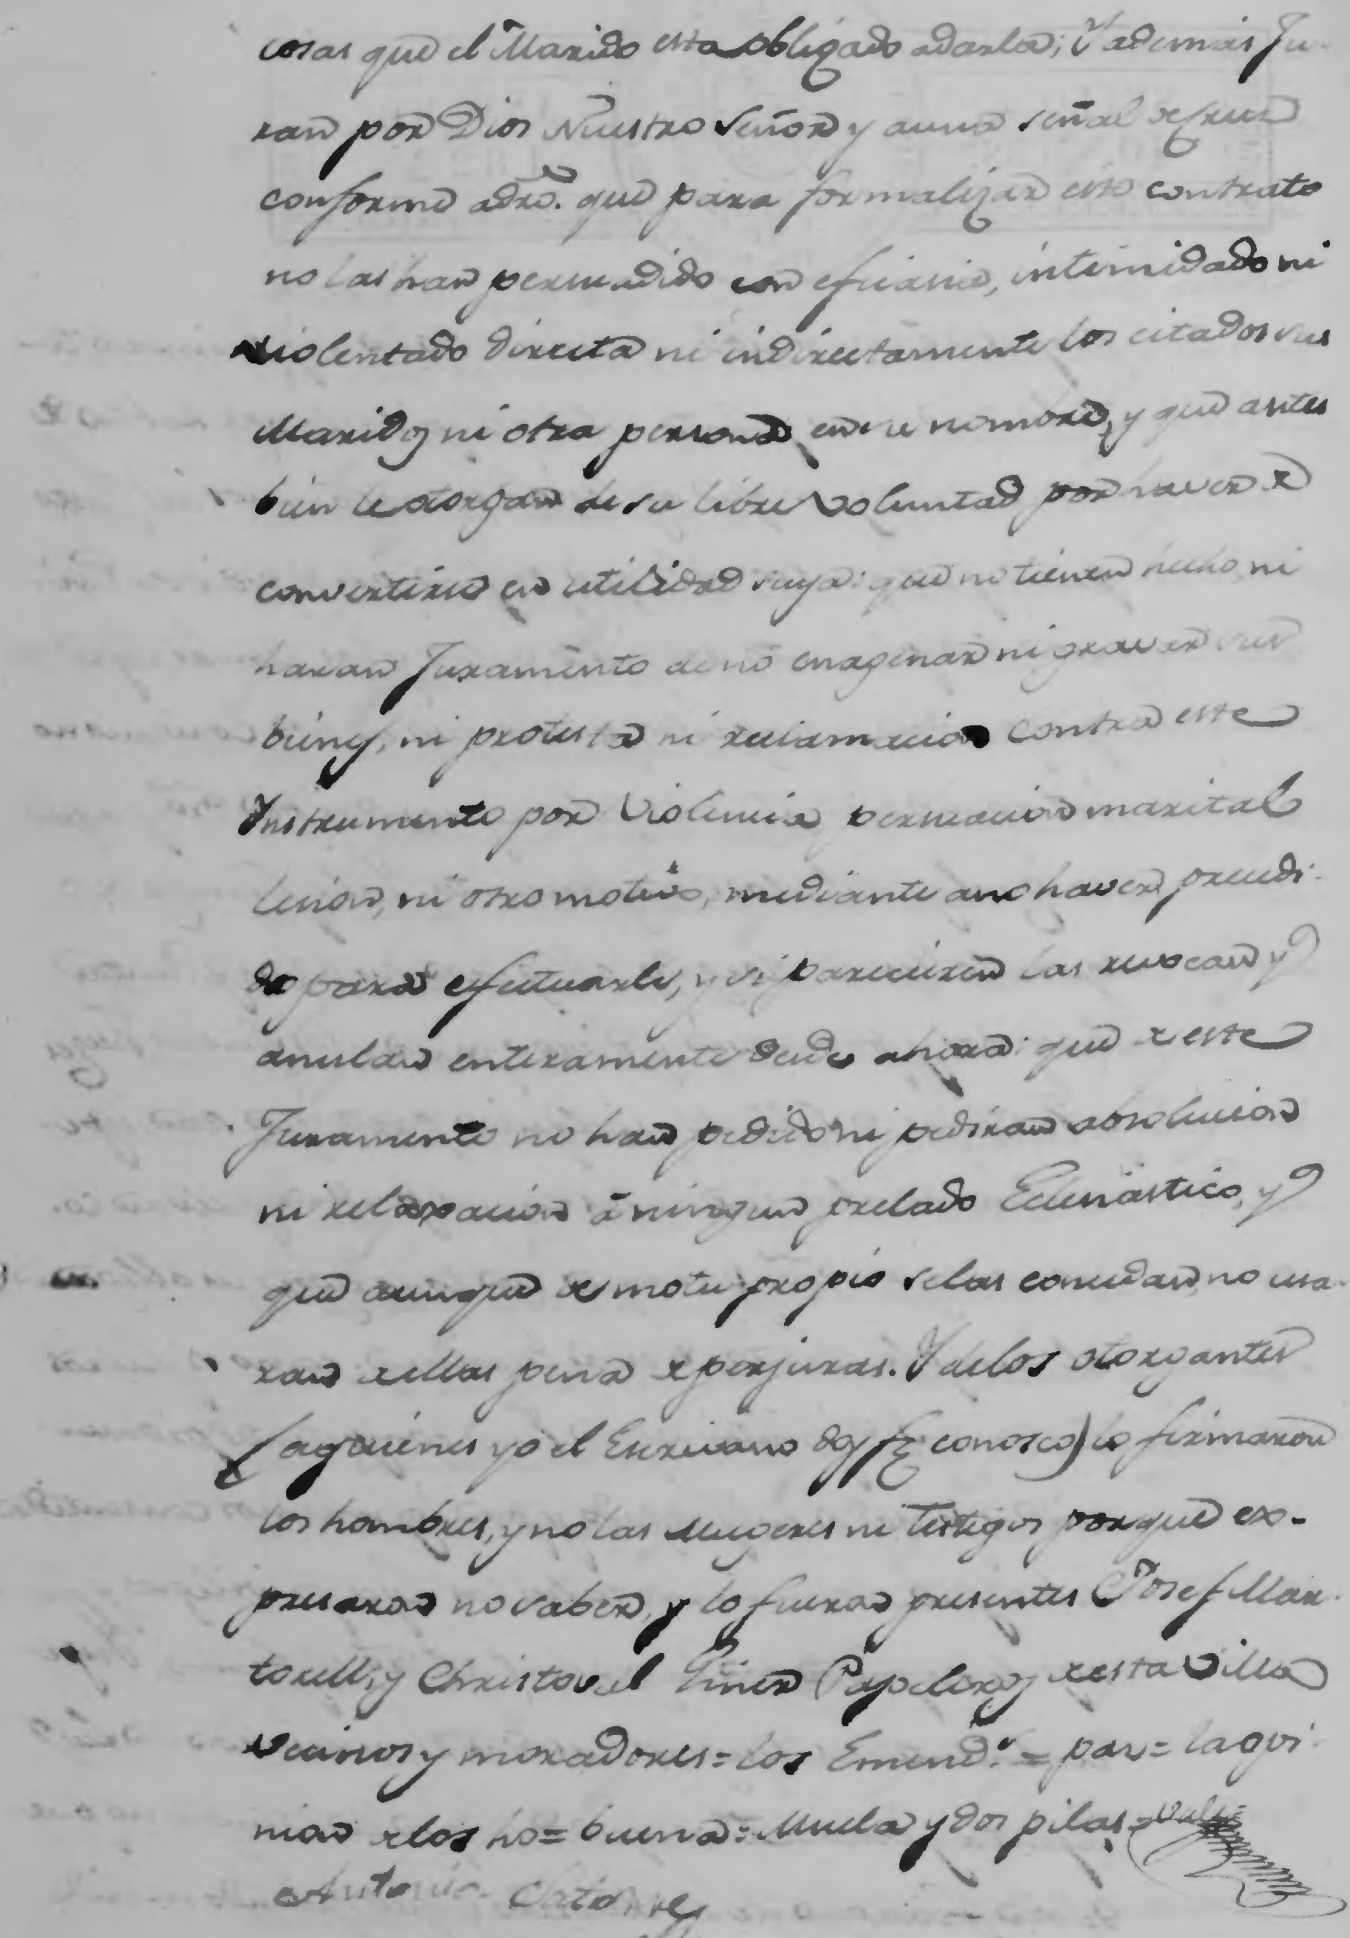 cosas que el Marido esta obligado adarla; Y ademas Ju-
ran por Dios Nuestro Señor y auna señal de Cruz
conforme adro. que para formalizar este contrato
no las han persuadido con eficacia, intimidado ni
violentado directa ni indirectamente los citados sus
Maridos ni otra persona en su nombre, y que antes
bien le otorgan de su libre voluntad por haver de
convertirse en utilidad suya: que no tienen hecho, ni
haran Juramento de no enagenar ni gravar sus
bienes, ni protesta ni reclamacion contra este
Instrumento por violencia persuacion marital
lesion, ni otro motivo, mediante ano haver precedi-
do para efectuarle, y si pareciesen las revocan y
anulan enteramente desde ahora: que de este
Juramento no han pedido ni pediran absolucion
ni relaxacion á ningun prelado Eclesiastico, y
que aunque de motu propio selas concedan, no usa-
ran dellas pena de perjuras. Y delos otorgantes
(aquienes yo el Escrivano doy fe conosco) lo firmaron
los hombres, y no las Mugeres ni Testigos porque ex-
presaron no saber, y lo fueron presentes Josef Mar-
torell, y Christoval Giner Papeleros de esta Villa
vecinos y moradores = los Emend.s = par = la qui
nion de los ho = buena = Muela y dos pilas = Valg
Antonio